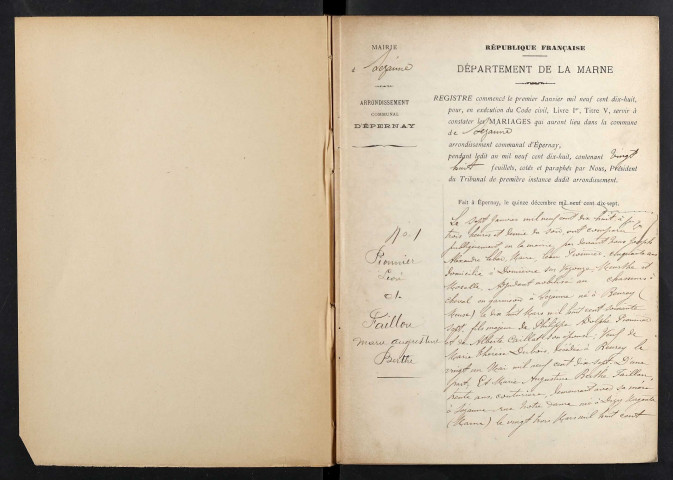 MAIRIE
Sézanne
ARRONDISSEMENT
COMMUNAL
D'ÉPERNAY
RÉPUBLIQUE FRANÇAISE
DÉPARTEMENT DE LA MARNE
REGISTRE commencé le premier Janvier mil neuf cent dix-huit,
pour, en exécution du Code civil, Livre Ier, Titre V, servir à
constater les MARIAGES qui auront lieu dans la commune
de Sézanne
arrondissement communal d'Épernay,
pendant ledit an mil neuf cent dix-huit, contenant vingt
huit feuillets, cotés et paraphés par Nous, Président
du Tribunal de première instance dudit arrondissement.
Fait à Épernay, le quinze décembre mil neuf cent dix-sept.
No 1
Pionnier
Léon
et
Faillon
Marie Augustine
Berthe
Le sept Janvier mil neuf cent dix huit à
trois heures et demie du soir, ont comparu
publiquement en la mairie, par devant Joseph
Alexandre Maire, Léon Pionnier
domicilié à Meurthe et
Moselle, Adjudant chasseurs à
cheval en garnison à Sézanne né à
(Meuse) le dix huit Mars mil huit cent soixante
sept, fils majeur de Philippe Adolphe Pionnier
et de son épouse; Veuf de
Marie Thérèse Dubois, décédée à le
vingt un Mai mil neuf cent dix sept. D'une
part, Et Marie Augustine Berthe Faillon,
trente ans couturière, demeurant avec sa mère
à Sézanne rue Notre Dame née à
(Marne) le vingt trois mil huit cent